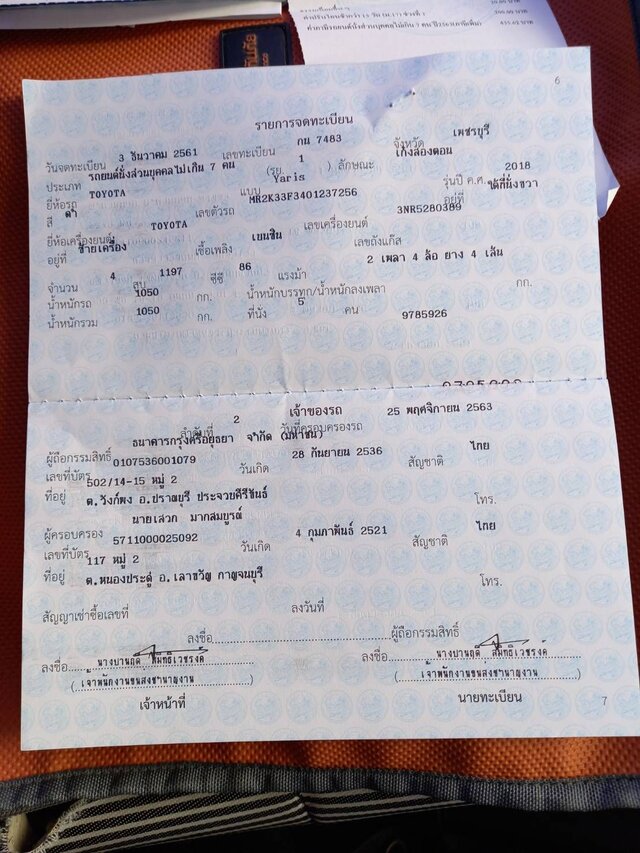 ค่าปรับโอนช้ากว่า 15 วัน (ม.17) ช่วงที่ 1
6
รายการจดทะเบียน
วันจดทะเบียน 3 ธันวาคม 2561 เลขทะเบียน กน 7483 จังหวัด เพชรบุรี
ประเภท รถยนต์นั่งส่วนบุคคลไม่เกิน 7 คน (รย. 1 ) ลักษณะ เก๋งสองตอน
ยี่ห้อรถ TOYOTA แบบ Yaris รุ่นปี ค.ศ. 2018
สี ดำ เลขตัวรถ MR2K33F3401237256 อยู่ที่ ใต้ที่นั่งขวา
ยี่ห้อเครื่องยนต์ TOYOTA เลขเครื่องยนต์ 3NR5280389
อยู่ที่ ซ้ายเครื่อง เชื้อเพลิง เบนซิน เลขถังแก๊ส
จำนวน 4 สูบ 1197 ซีซี 86 แรงม้า 2 เพลา 4 ล้อ ยาง 4 เส้น
น้ำหนักรถ 1050 กก. น้ำหนักบรรทุก/น้ำหนักลงเพลา กก.
น้ำหนักรวม 1050 กก. ที่นั่ง 5 คน 9785926
เจ้าของรถ
ลำดับที่ 2 วันที่ครอบครองรถ 25 พฤศจิกายน 2563
ผู้ถือกรรมสิทธิ์ ธนาคารกรุงศรีอยุธยา จำกัด (มหาชน)
เลขที่บัตร 0107536001079 วันเกิด 28 กันยายน 2536 สัญชาติ ไทย
ที่อยู่ 502/14-15 หมู่ 2
ต.วังก์พง อ.ปราณบุรี ประจวบคีรีขันธ์ โทร.
ผู้ครอบครอง นายเสวก มากสมบูรณ์
เลขที่บัตร 5711000025092 วันเกิด 4 กุมภาพันธ์ 2521 สัญชาติ ไทย
ที่อยู่ 117 หมู่ 2
ต.หนองประดู่ อ.เลาขวัญ กาญจนบุรี โทร.
สัญญาเช่าซื้อเลขที่ ลงวันที่
ลงชื่อ ผู้ถือกรรมสิทธิ์
ลงชื่อ นางปานฤดี ลงชื่อ นางปานฤดี
(เจ้าพนักงานขนส่งชำนาญงาน) (เจ้าพนักงานขนส่งชำนาญงาน)
เจ้าหน้าที่ นายทะเบียน
7